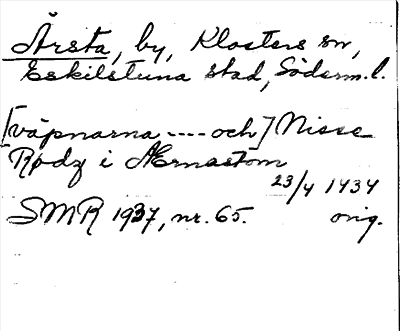 Årsta, by, Klosters sn,
Eskilstuna stad, Söderm. l.
[väpnarna ---- och] Nisse
Rødz i Ærnastom
23/4 1434
SMR 1937, nr. 65. orig.